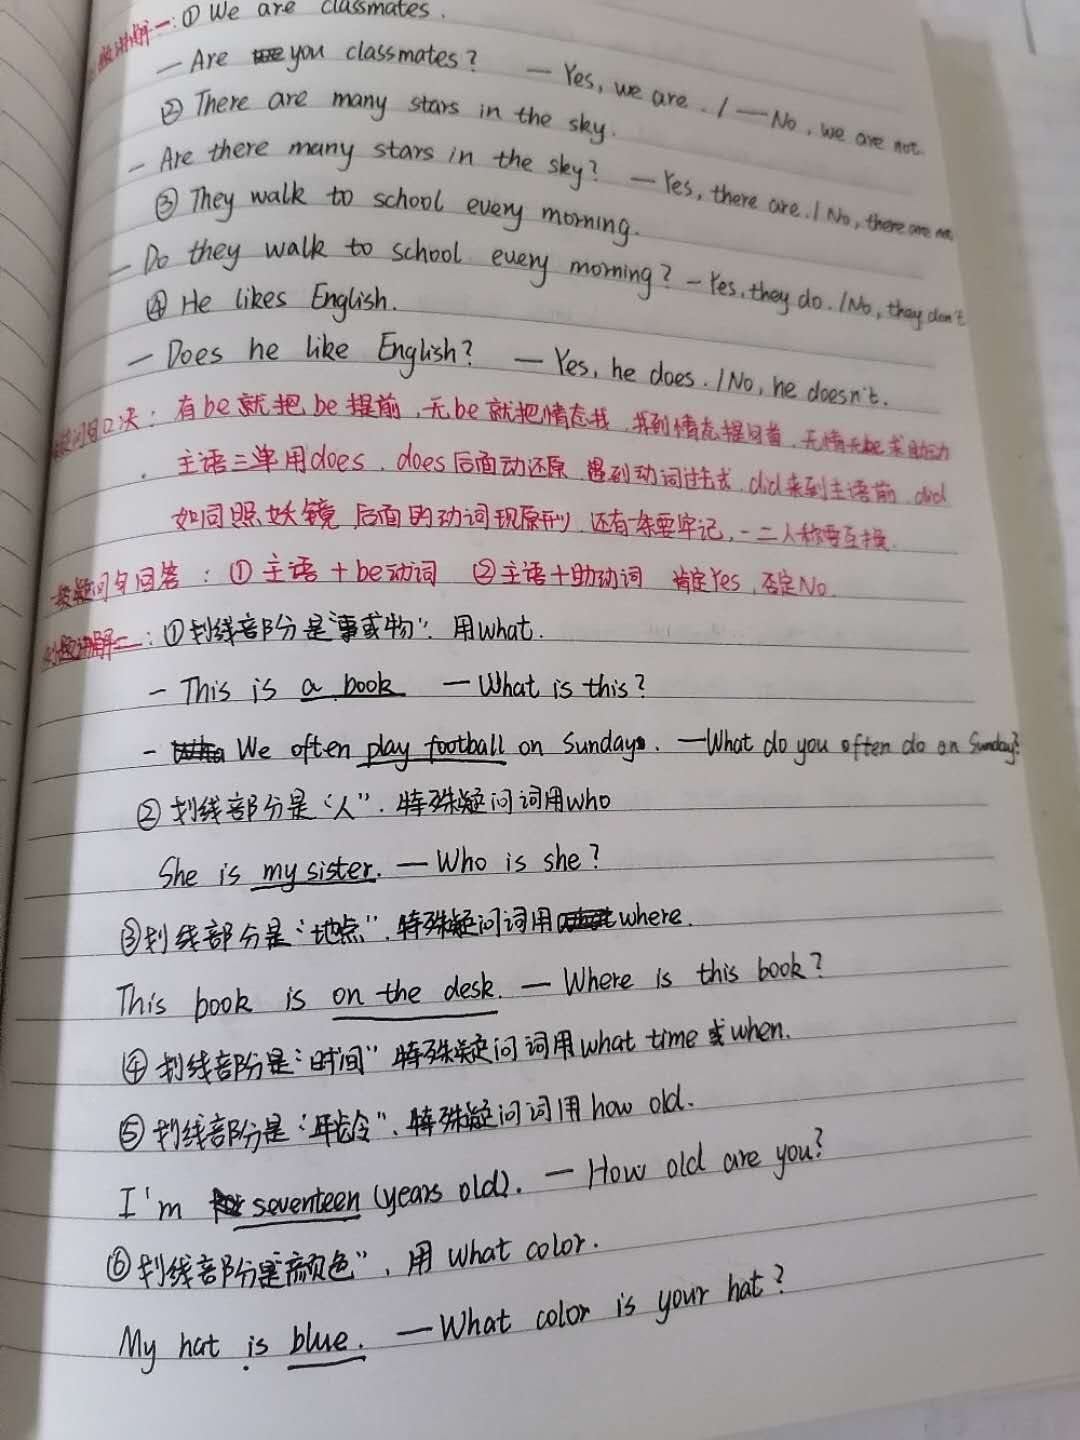 讲解一:① We are classmates.
— Are you classmates? — Yes, we are. / — No, we are not.
② There are many stars in the sky.
- Are there many stars in the sky? — Yes, there are. / No, there are
③ They walk to school every morning.
— Do they walk to school every morning? - Yes, they do. / No, they don't
④ He likes English.
— Does he like English? — Yes, he does. / No, he doesn't.
问句口决: 有be就把be提前,无be就把情态找,找到情态提句首,无情无be求助动
主语三单用does,does后面动还原,遇到动词过去式,did来到主语前,did
如同照妖镜 后面的动词现原形,还有一条要牢记,一二人称要互换.
一般疑问句回答: ① 主语+be动词 ② 主语+助动词 肯定Yes,否定No.
讲解二:①划线部分是"事或物",用what.
- This is a book — What is this?
- We often play football on Sundays. — What do you often do on Sunday?
② 划线部分是"人",特殊疑问词用who
She is my sister. — Who is she?
③划线部分是"地点",特殊疑问词用where.
This book is on the desk. — Where is this book?
④ 划线部分是"时间" 特殊疑问词用what time或when.
⑤ 划线部分是"年龄",特殊疑问词用how old.
I'm seventeen (years old). — How old are you?
⑥划线部分是"颜色",用 what color.
My hat is blue. — What color is your hat?